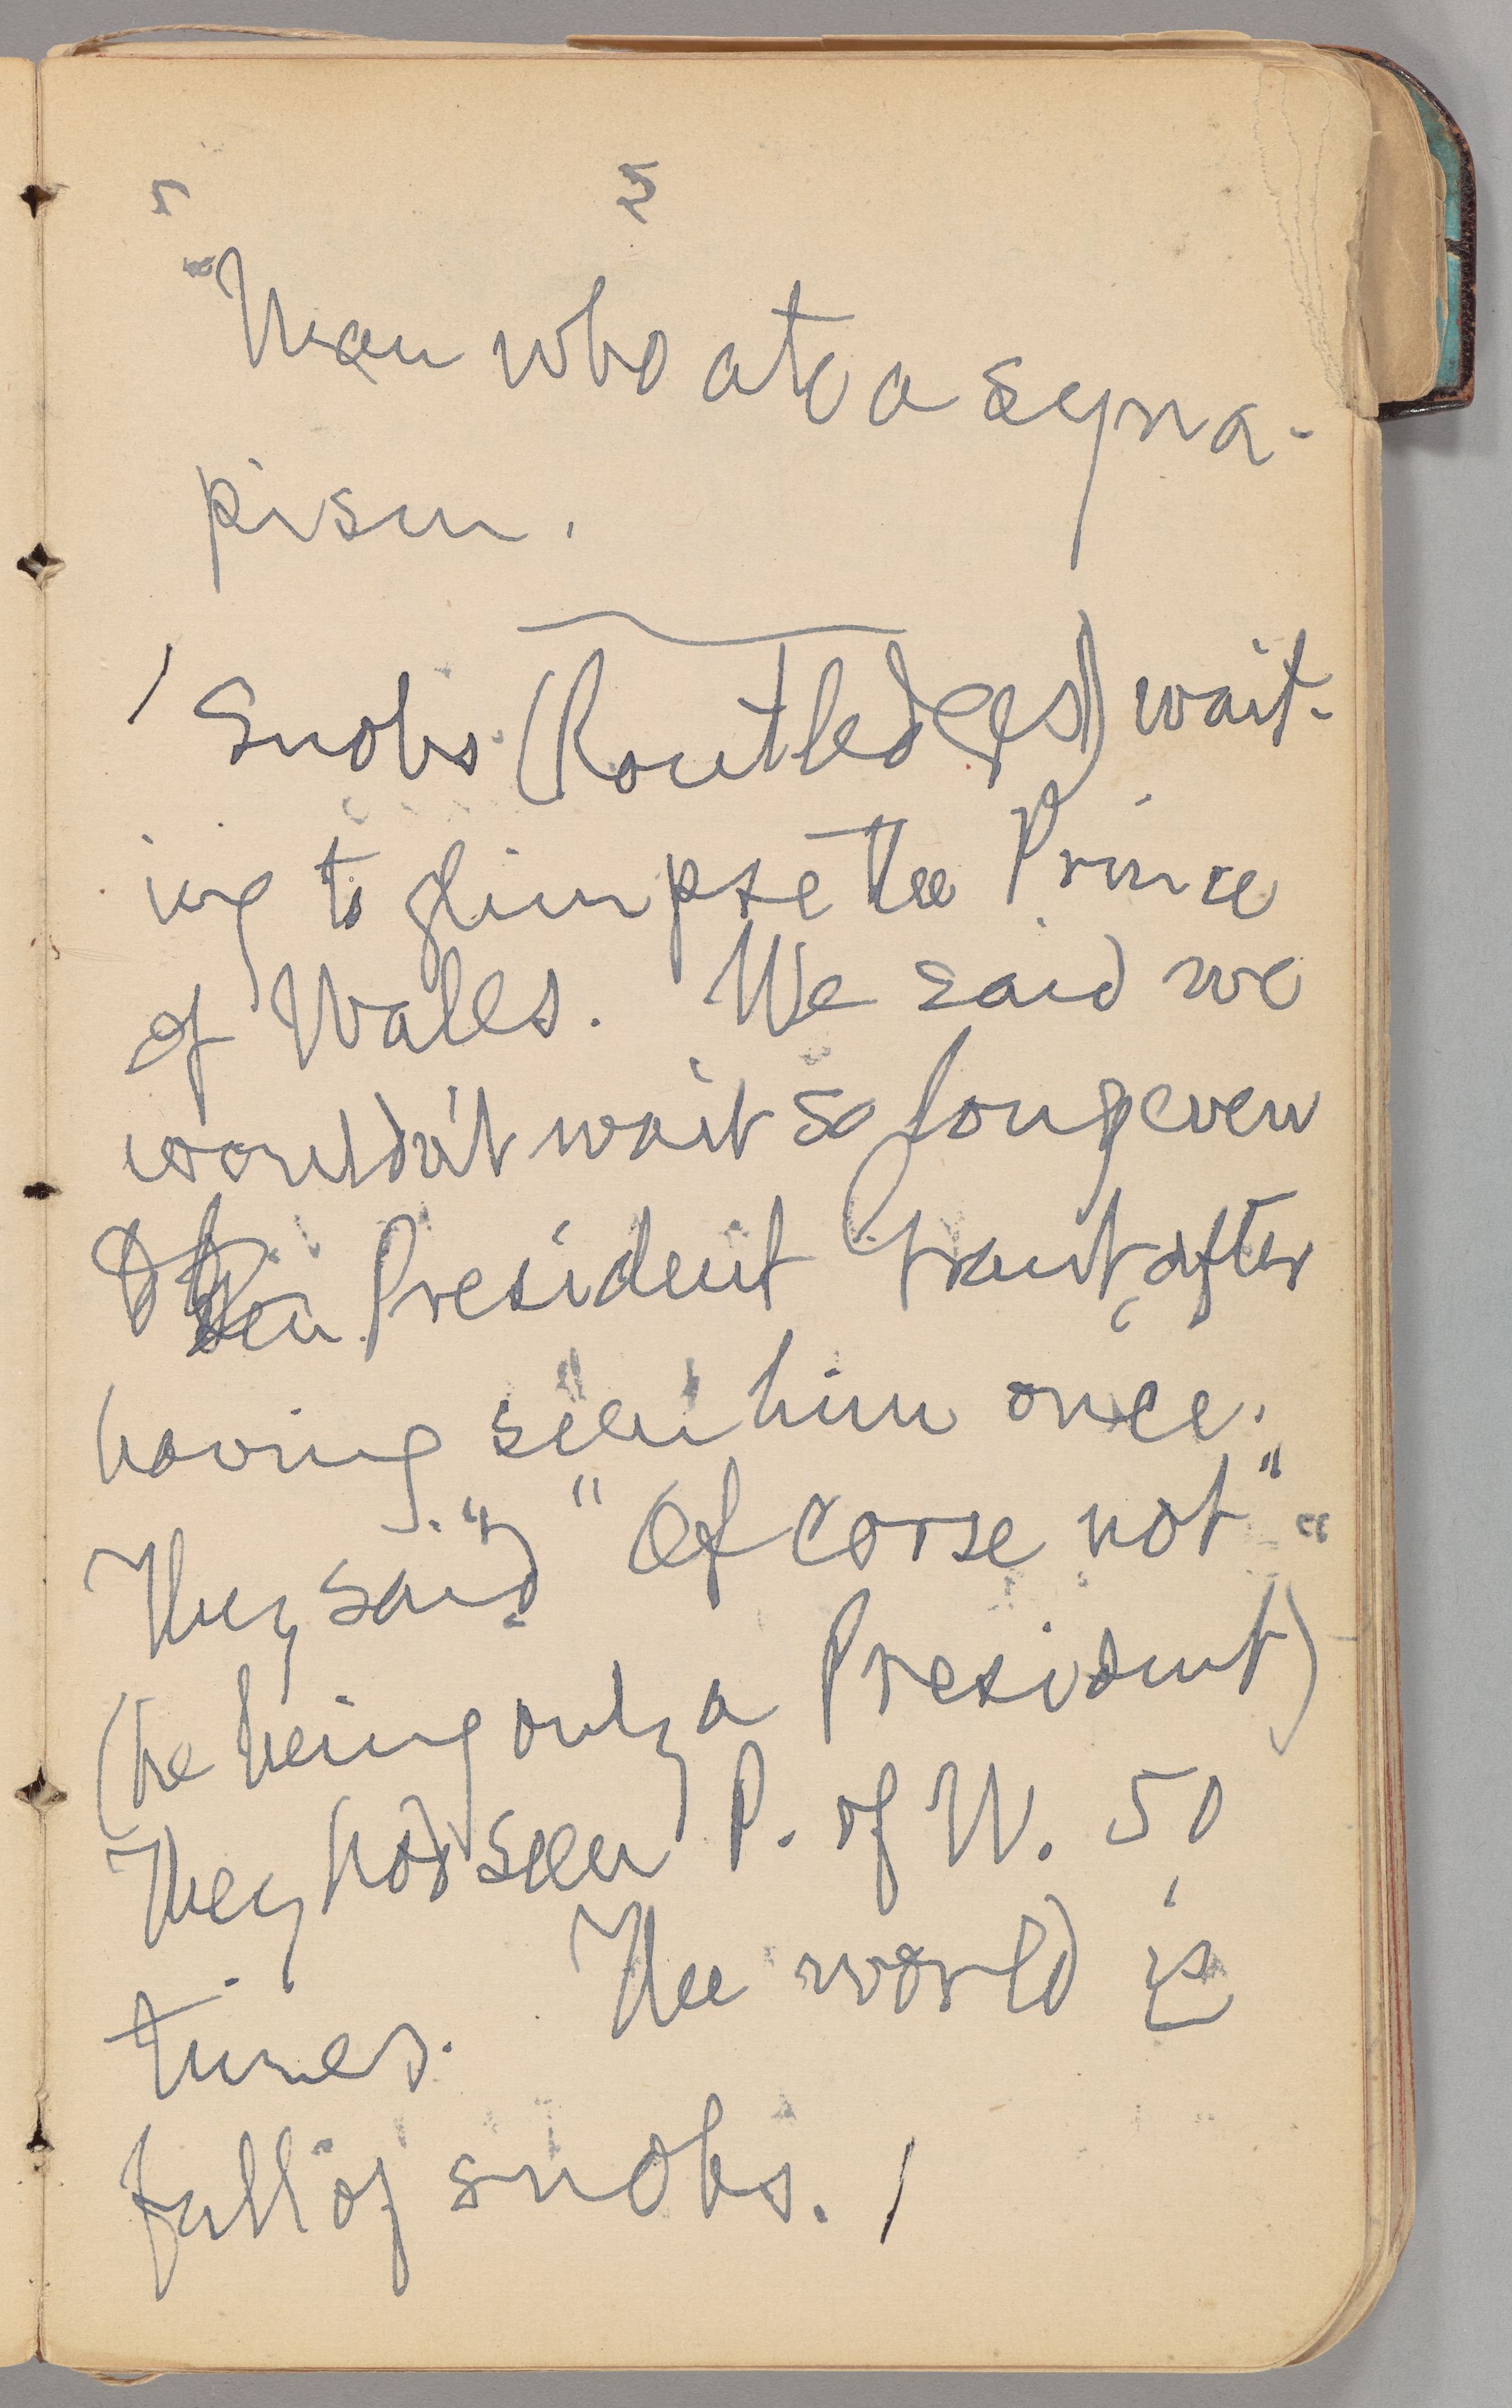 5
Man who ate a syna-
pism.
Snobs (Routledges) wait-
ing to glimpse the Prince
of Wales. We said we
wouldn't wait so long even
President Grant, after
having seen him once.
They said "Of corse not"
(he being only a President)
They had seen P. of W. 50
times. The world is
full of snobs.